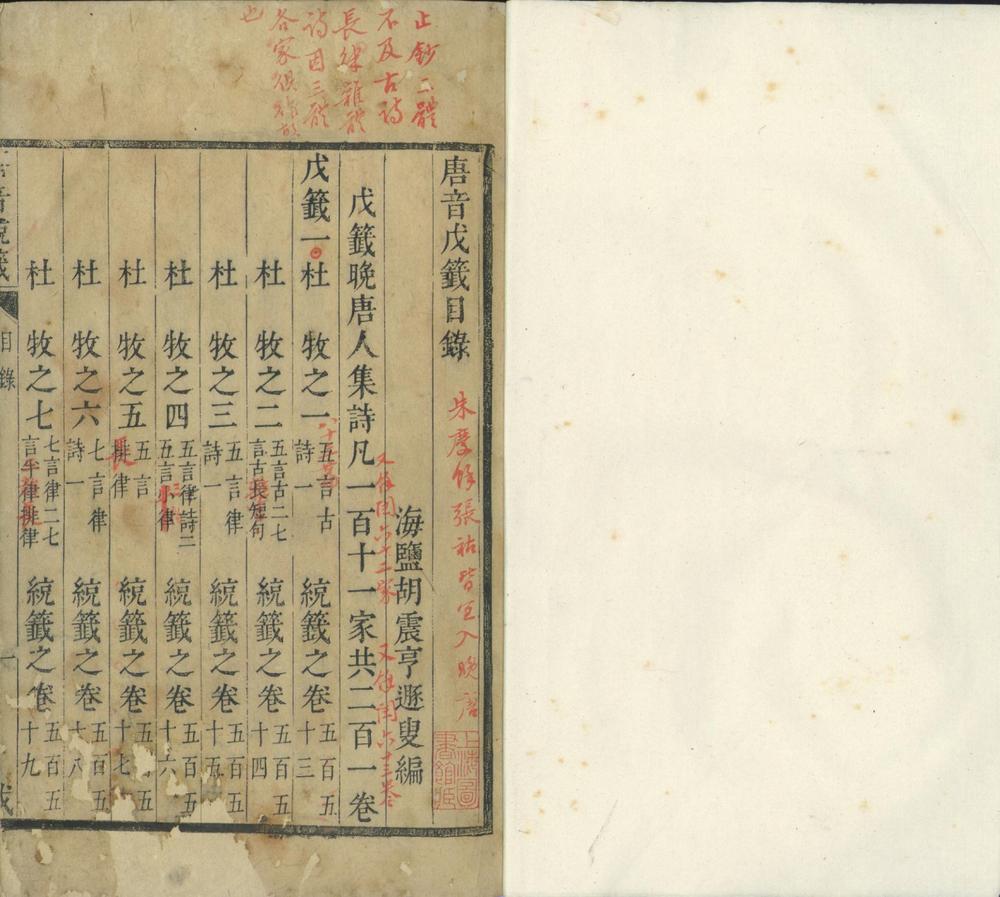 止鈔二體
不及古詩
長律雜體
詩因三體
各家俱
也
唐音戊籤目錄
朱慶餘張祜皆宜入晚唐
上海圖
書館臧
海鹽胡震亨遯叟編
戊籤晚唐人集詩凡一百十一家共二百一卷
又閏六十二家
又閏六十三卷
戊籤一 杜 牧之一 五言古詩一 統籤之卷五百五十三
杜 牧之二 五言古二七言古長短句 統籤之卷五百五十四
杜 牧之三 五言律詩一 統籤之卷五百五十五
杜 牧之四 五言律詩二五言小律 統籤之卷五百五十六
杜 牧之五 五言排律 統籤之卷五十七
長
杜 牧之六 七言律詩一 統籤之卷五百五十八
杜 牧之七 七言律二七言半律排律 統籤之卷五百五十九
音統籤
目錄
一
戊